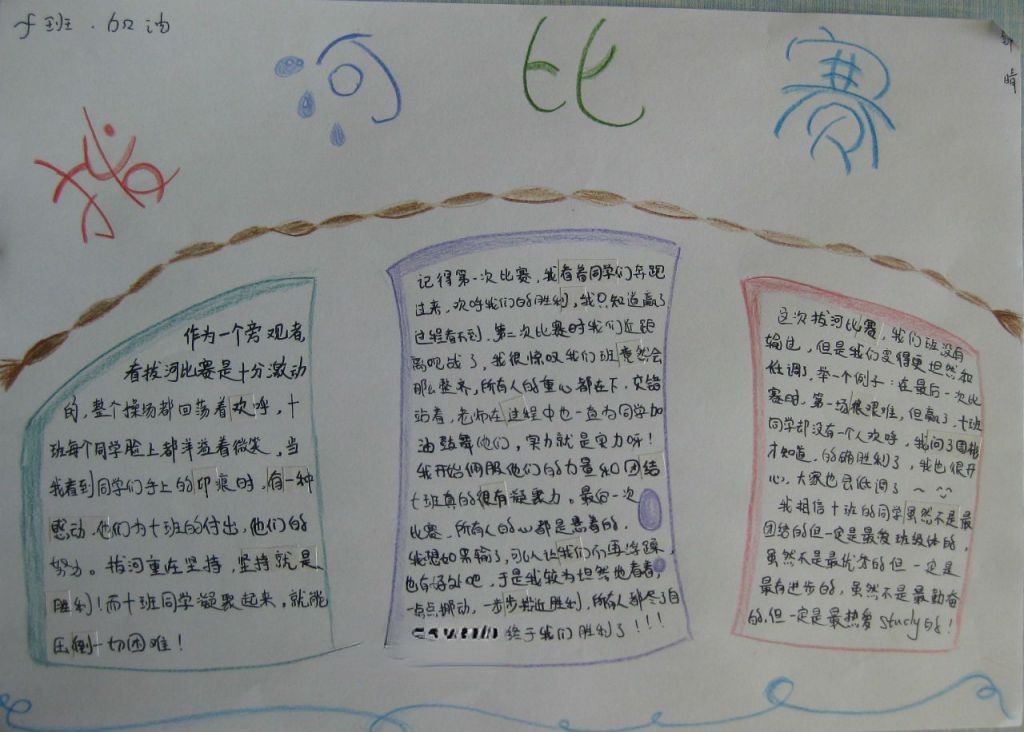 十班.加油
郭晴
拔河比赛
作为一个旁观者,
看拔河比赛是十分激动
的,整个操场都回荡着欢呼,十
班每个同学脸上都洋溢着微笑,当
我看到同学们手上的印痕时,有一种
感动.他们为十班的付出,他们的
努力。拔河重在坚持,坚持就是
胜利!而十班同学凝聚起来,就能
压倒一切困难!
记得第一次比赛,我看着同学们奔跑
过来,欢呼我们的胜利,我只知道赢了
过程看不到.第二次比赛时我们近距
离观战了,我很惊叹我们班竟然会
那么整齐,所有人的重心都在下,交错
站着,老师在过程中也一直为同学加
油鼓舞他们,实力就是实力呀!
我开始佩服他们的力量和团结
十班真的很有凝聚力。最后一次
比赛,所有人的心都是悬着的,
我想如果输了,可以让我们们再浮躁,
也有好处吧,于是我较为坦然地看着,
一点点挪动,一步步接近胜利,所有人都尽了自
终于我们胜利了!!!
这次拔河比赛,我们班没有
输过,但是我们变得更坦然和
低调了,举一个例子:在最后一次比
赛时,第一场很艰难,但赢了,十班
同学却没有一个人欢呼,我问了周梅
才知道,的确胜利了,我也很开
心,大家也会低调了~
我相信十班的同学虽然不是最
团结的但一定是最爱班级体的,
虽然不是最优秀的但一定是
最有进步的,虽然不是最勤奋
的,但一定是最热爱study的!